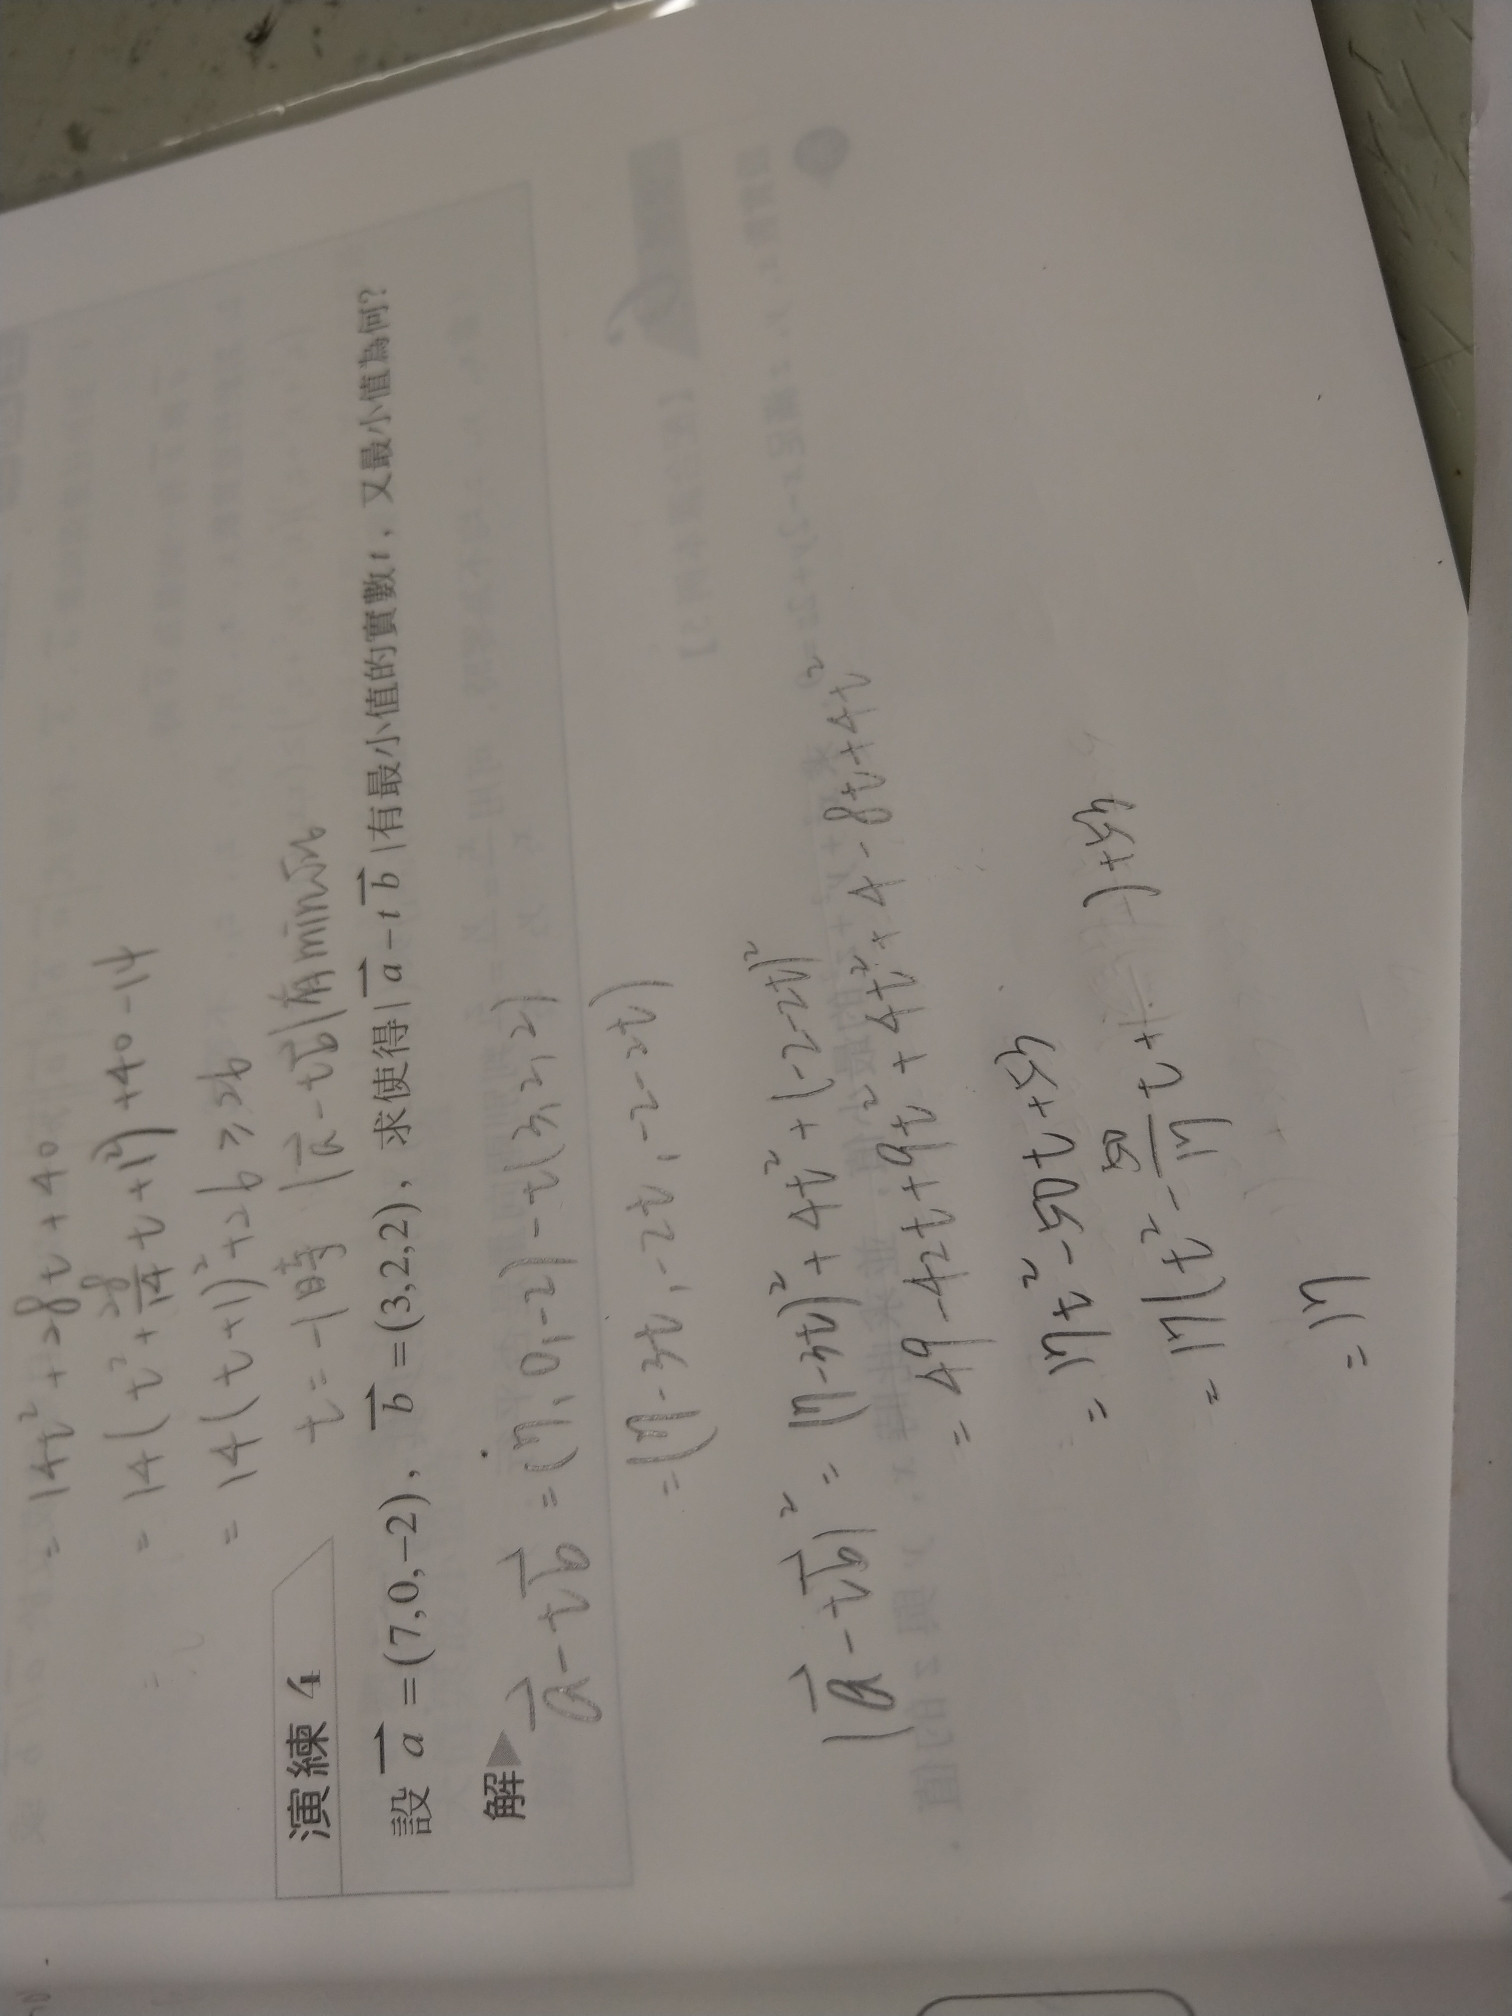 = 14t² + 28t + 40
= 14(t² + 28/14 t + 1²) + 40 - 14
= 14(t+1)² + 26 ≥ 26
t = -1時 |a⃗ - tb⃗|有min√26
演練 4
設 a⃗ = (7,0,−2), b⃗ = (3,2,2), 求使得|a⃗ − t b⃗|有最小值的實數t, 又最小值為何?
解▶ a⃗ - tb⃗ = (7,0,-2) - t(3,2,2)
= (7-3t, -2t, -2-2t)
|a⃗ - tb⃗|² = (7-3t)² + 4t² + (-2-2t)²
= 49 - 42t + 9t² + 4t² + 4 - 8t + 4t²
= 17t² - 50t + 53
= 17(t² - 50/17 t + ) + 53
= 17